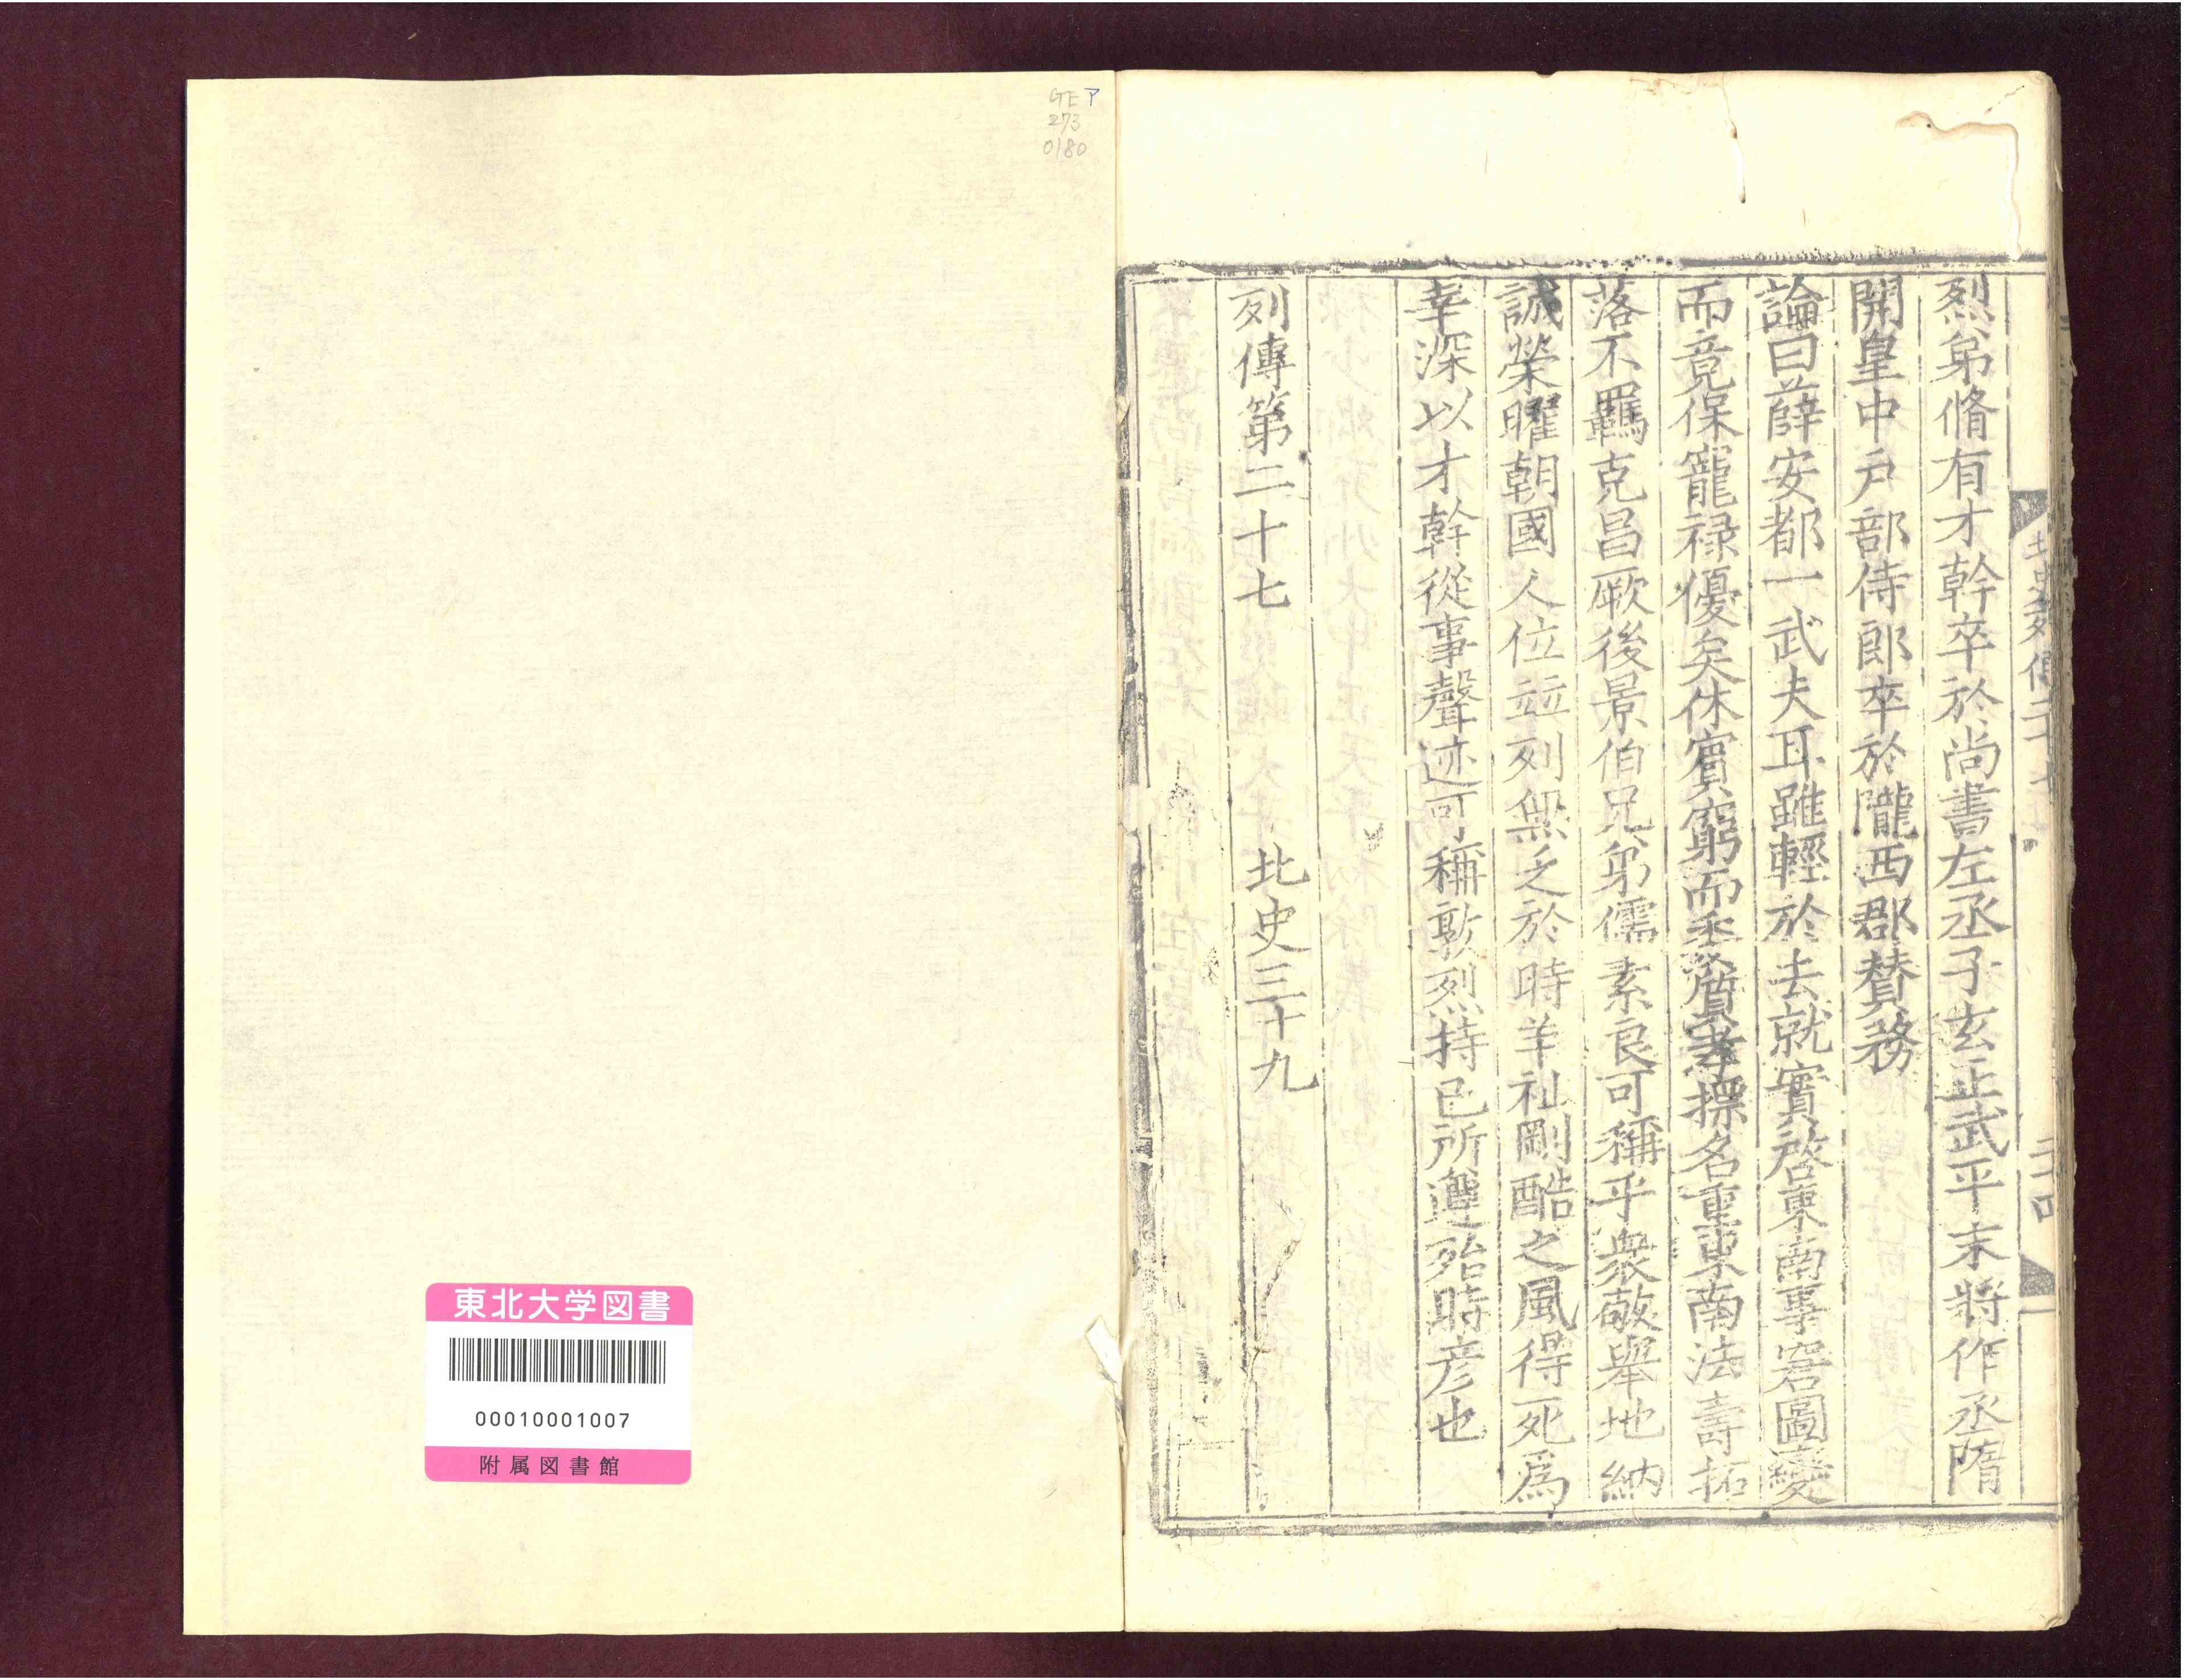 烈弟脩有才幹卒於尚書左丞子玄正武平末將作丞隋
開皇中戶部侍郎卒於隴西郡賛務
論曰薛安都一武夫耳雖輕於去就實啓東南事窘圖變
而竟保寵祿優矣休賓窮而委質孝摽名重東南法壽拓
落不羈克昌厥後景伯兄弟儒素良可稱乎衆敬舉地納
誠榮曜朝國人位竝列無乏於時羊祉剛酷之風得死爲
幸深以才幹從事聲迹可稱敦烈持已所遵殆時彦也
列傳第二十七 北史三十九
北史列傳二十七
二十四
GEア
273
0180
東北大学図書
00010001007
附属図書館